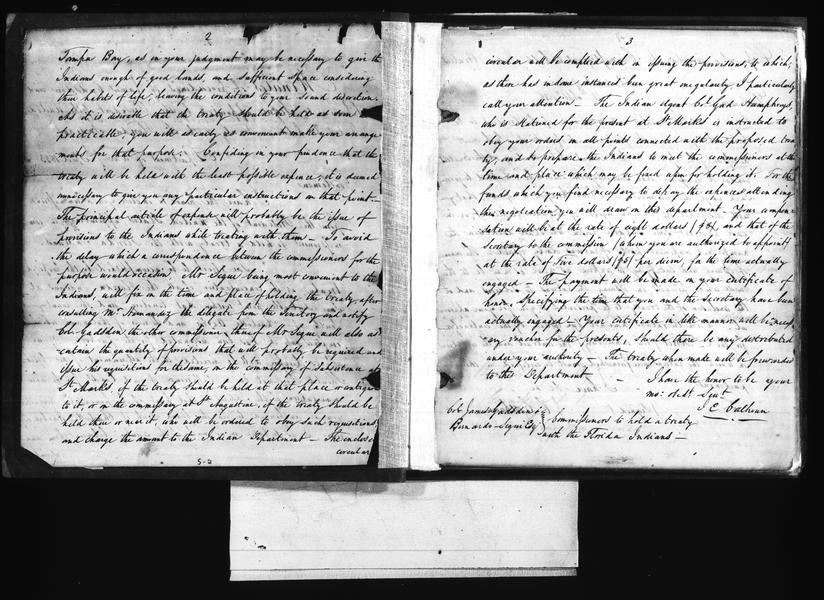 2
Tampa Bay, as in your judgment may be necessary to give the
Indians enough of good lands, and sufficient space considering
their habits of life, leaving the conditions to your sound discretion
As it is desirable that the treaty should be held as soon as
practicable, you will as early as convenient make your arrange
ments for that purpose. Confiding in your prudence that the
treaty will be held with the least possible expence, it is deemed
unnecessary to give you any particular instructions on that point—
The principal article of expense will probably be the issue of
provisions to the Indians while treating with them — To avoid
the delay which a correspondence between the commissioners for the
purpose would occasion, Mr Segui being most convenient to the
Indians, will fix on the time and place of holding the treaty after
consulting Mr Hernandez the delegate from the Territory and notify
Col. Gadsden the other commissioner, thereof Mr Segui will also as
certain the quantity of provisions that will probably be required and
issue his requisitions for the same, on the commissary of subsistence at
St Marks if the treaty should be held at that place or contiguous
to it, or on the commissary at St Augustine, if the treaty should be
held there or near it, who will be ordered to obey such requisitions
and charge the amount to the Indian Department — The enclosed
circular
5-2
3
circular will be complied with in issuing the provisions, to which,
as there has in some instances been great irregularity, I particularly
call your attention — The Indian Agent Col Gad Humphreys,
who is stationed for the present at St Marks is instructed to
obey your orders on all points connected with the proposed trea
ty, and to prepare the Indians to meet the commissioners at the
time and place which may be fixed upon for holding it. For the
funds which you find necessary to defray the expences attending
this negotiation, you will draw on this department — Your compen
sation will be at the rate of eight dollars ($8), and that of the
Secretary to the commission (whom you are authorized to appoint)
at the rate of five dollars ($5) per diem, for the time actually
engaged — The payment will be made on your certificate of
honor, specifying the time that you and the Secretary have been
actually engaged — Your certificate in like manner will be necess
ary voucher for the presents, should there be any distributed
under your authority — The treaty when made will be forwarded
to this Department —
I have the honor to be your
mo: obdt. Servt.
J C Calhoun
Col James Gadsden &
Bernardo Segui Esq
Commissioners to hold a treaty
with the Florida Indians —